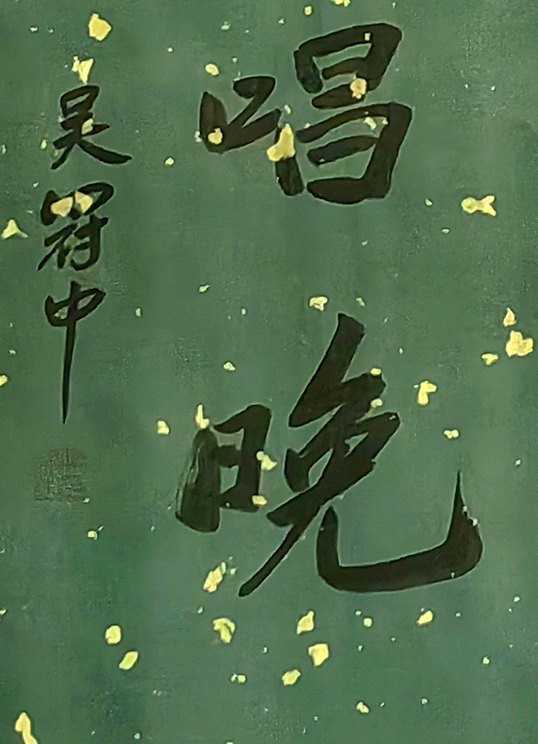 唱晚
吴冠中